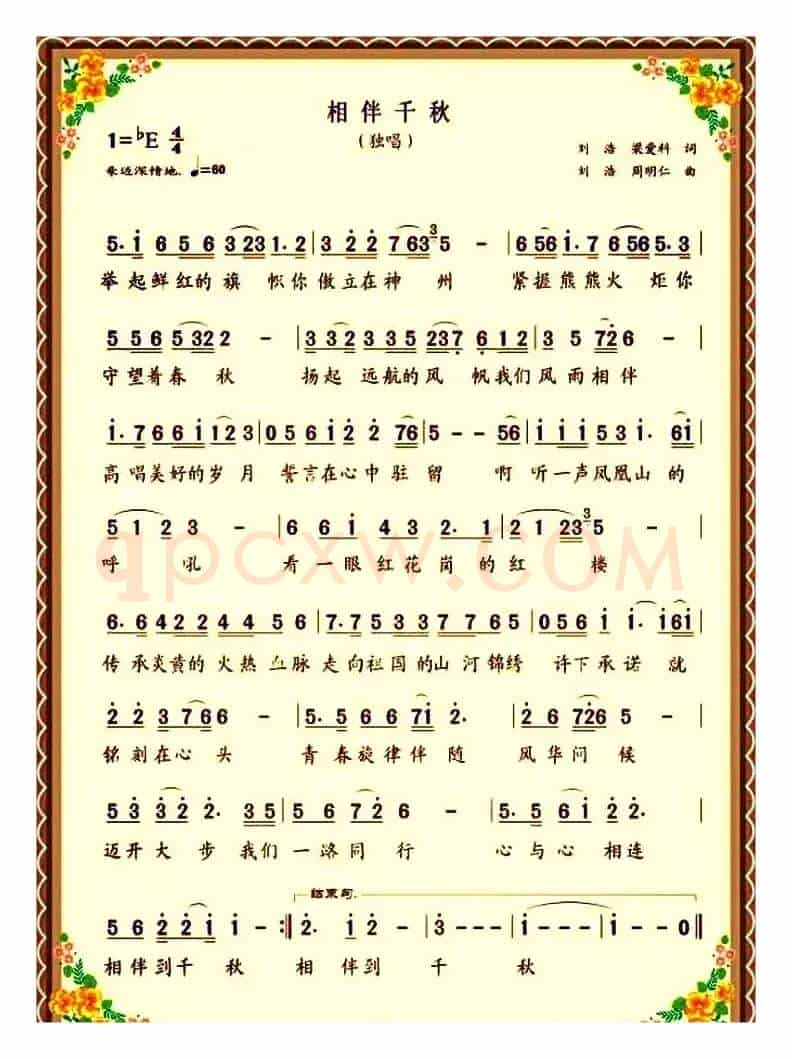 相伴千秋
1=♭E 4/4
（独唱）
刘浩 梁爱科 词
豪迈深情地. ♩=60
刘浩 周明仁 曲
5. i 6 5 6 3 23 1. 2 | 3 2 2 7 63 5 - | 6 56 i. 7 6 56 5. 3 |
举起鲜红的旗 帜你傲立在神 州 紧握熊熊火 炬你
5 5 6 5 32 2 - | 3 3 2 3 3 5 23 7 6 1 2 | 3 5 72 6 - |
守望着春 秋 扬起 远航的风 帆我们风雨相伴
i. 7 6 6 i i2 3 | 0 5 6 i 2 2 76 | 5 - - 56 | i i i 5 3. 6i |
高唱美好的岁 月 誓言在心中驻 留 啊 听一声凤凰山的
5 1 2 3 - | 6 6 i 4 3 2. 1 | 2 1 23 5 - |
呼 吼 看一眼红花 岗 的红 楼
6. 6 4 2 2 4 4 5 6 | 7. 7 5 3 3 7 7 6 5 | 0 5 5 6 i i. i6i |
传承炎黄的 火热 血脉 走向祖国的山河锦绣 许下承诺 就
2 2 3 7 6 6 - | 5. 5 6 6 7i 2. | 2 6 726 5 - |
铭刻在心 头 青春旋律伴 随 风华问 候
5 3 3 2 2. 3 5 | 5. 5 6 7 2 6 - | 5. 5 6 i 2 2. |
迈开大 步 我们 一路同 行 心与心 相连
结束句.
5 6 2 2 i i - :‖ 2. i 2 - | 3 - - - | i - - - | i - - 0 ‖
相伴到千 秋 相 伴到 千 秋
qpcxw.COM